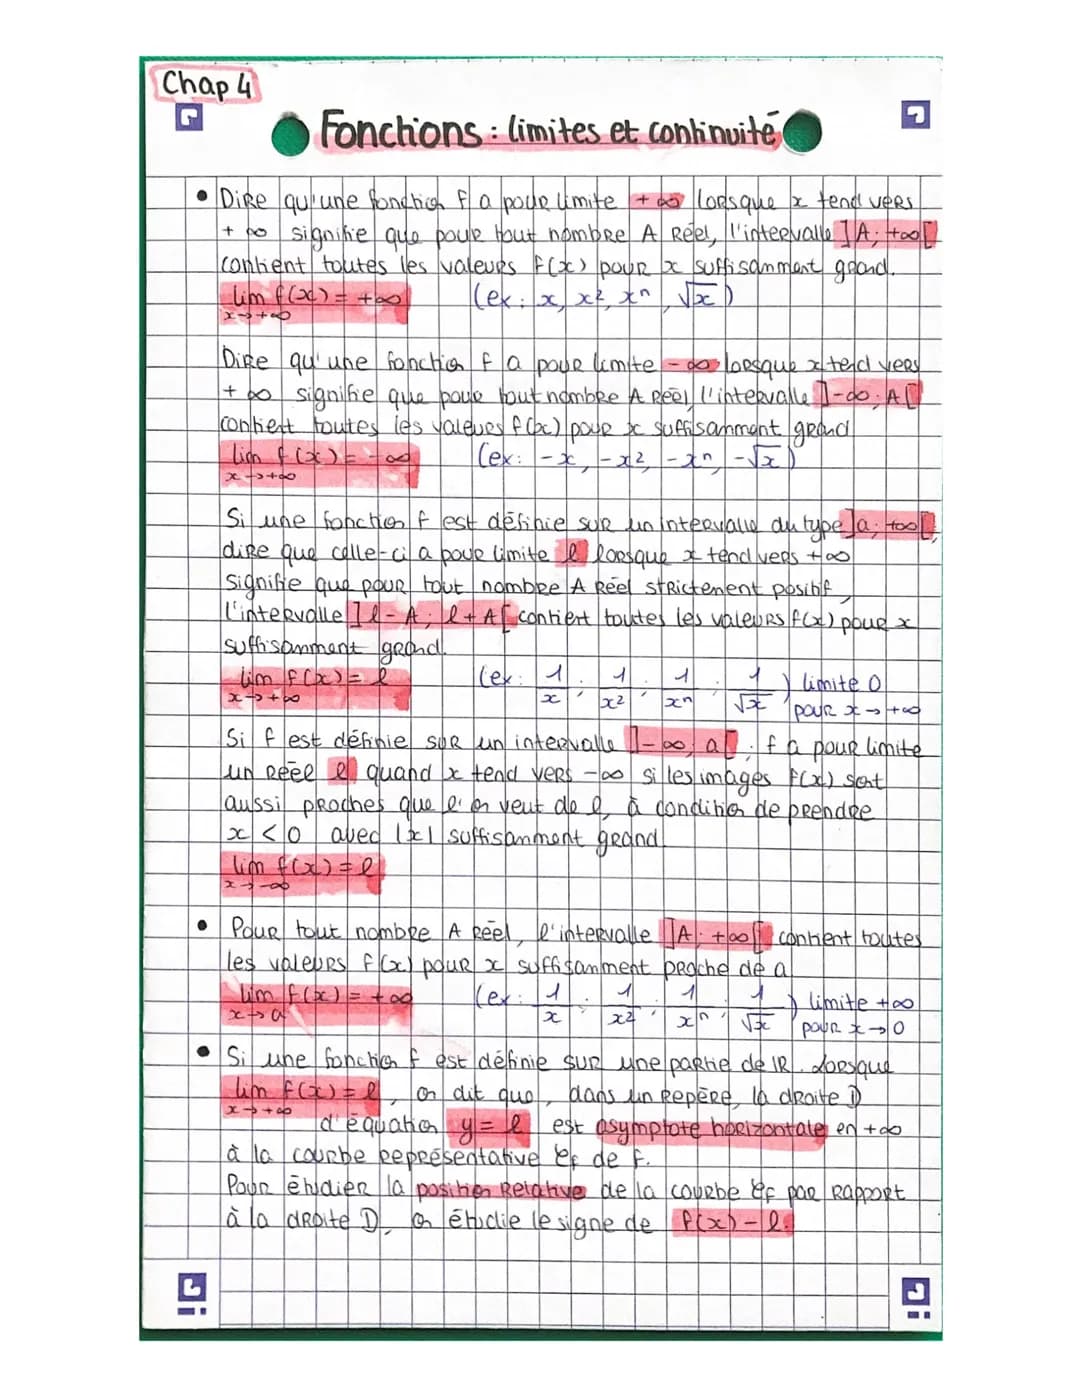 Chap 4
Fonctions : limites et continuité
• Dire qu'une fonction f a pour limite +∞ lorsque x tend vers
+∞ signifie que pour tout nombre A Réel, l'intervalle ]A; +∞[
contient toutes les valeurs f(x) pour x suffisamment grand.
lim f(x) = +∞ (ex: x, x², xⁿ, √x)
x→+∞
Dire qu'une fonction f a pour limite -∞ lorsque x tend vers
+∞ signifie que pour tout nombre A Réel, l'intervalle ]-∞; A[
contient toutes les valeurs f(x) pour x suffisamment grand
lim f(x) = -∞ (ex: -x, -x², -xⁿ, -√x)
x→+∞
Si une fonction f est définie sur un intervalle du type ]a; +∞[,
dire que celle-ci a pour limite l lorsque x tend vers +∞
signifie que pour tout nombre A Réel strictement positif,
l'intervalle ]l-A; l+A[ contient toutes les valeurs f(x) pour x
suffisamment grand.
lim f(x) = l (ex: 1/x ; 1/x² ; 1/xⁿ ; 1/√x) limite 0
x→+∞ pour x→+∞
Si f est définie sur un intervalle ]-∞; a[ : f a pour limite
un réel l quand x tend vers -∞ si les images f(x) sont
aussi proches que l'on veut de l, à condition de prendre
x < 0 avec |x| suffisamment grand.
lim f(x) = l
x→-∞
• Pour tout nombre A Réel, l'intervalle ]A; +∞[ contient toutes
les valeurs f(x) pour x suffisamment proche de a
lim f(x) = +∞ (ex: 1/x ; 1/x² ; 1/xⁿ ; 1/√x) limite +∞
x→a pour x→0
• Si une fonction f est définie sur une partie de IR. Lorsque
lim f(x) = l, on dit que, dans un repère, la droite D
x→+∞
d'équation y = l est asymptote horizontale en +∞
à la courbe représentative 𝒞f de f.
Pour étudier la position relative de la courbe 𝒞f par rapport
à la droite D, on étudie le signe de f(x)-l.